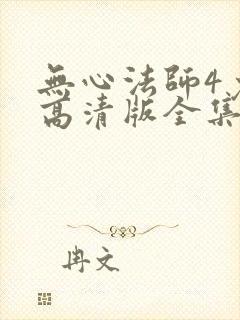 無心法師4
高清版全集
冉文